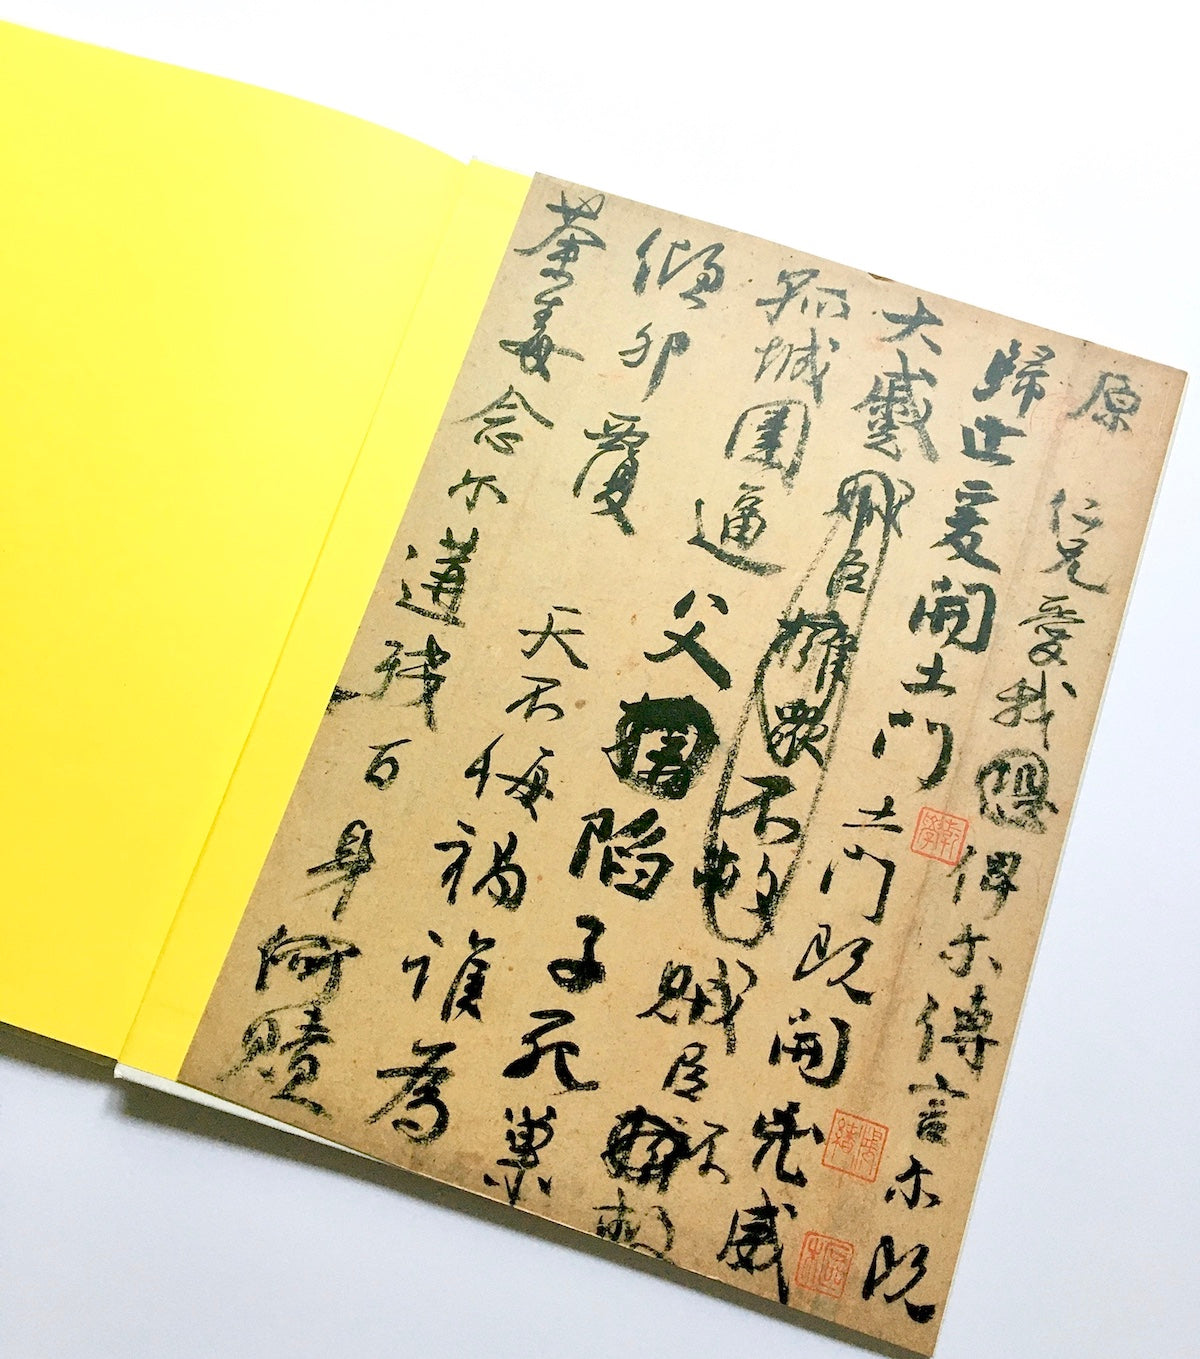 原仁兄愛我恐俾尔傳言尔既
歸止爰開土門土門既開凶威
大蹙賊臣擁衆不救賊臣不救
孤城圍逼父陷子死巢
傾卵覆天不悔禍誰為
荼毒念尔遘殘百身何贖